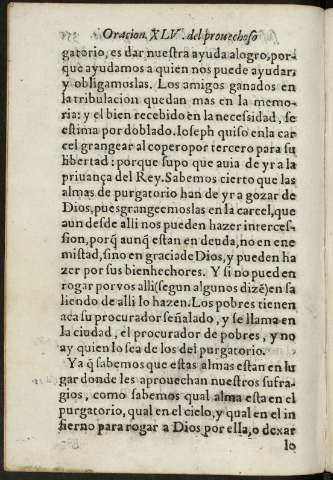 Oracion. XLV. del prouechoso
gatorio, es dar nuestra ayuda alogro, por-
que ayudamos a quien nos puede ayudar,
y obligamoslas. Los amigos ganados en
la tribulacion quedan mas en la memo-
ria: y el bien recebido en la necessidad, se
estima por doblado. Ioseph quiso enla car
cel grangear al copero por tercero para su
libertad: porque supo que auia de yr a la
priuança del Rey. Sabemos cierto que las
almas de purgatorio han de yr a gozar de
Dios, pues grangeemoslas en la carcel, que
aun desde alli nos pueden hazer interces-
sion, porq̃ aunq̃ estan en deuda, no en ene
mistad, sino en gracia de Dios, y pueden ha
zer por sus bienhechores. Y si no pueden
rogar por vos alli (segun algunos dizē) en sa
liendo de alli lo hazen. Los pobres tienen
aca su procurador señalado, y se llama en
la ciudad, el procurador de pobres, y no
ay quien lo sea de los del purgatorio.
Ya q̃ sabemos que estas almas estan en lu
gar donde les aprouechan nuestros sufra-
gios, como sabemos qual alma esta en el
purgatorio, qual en el cielo, y qual en el in
fierno para rogar a Dios por ella, o dexar
lo